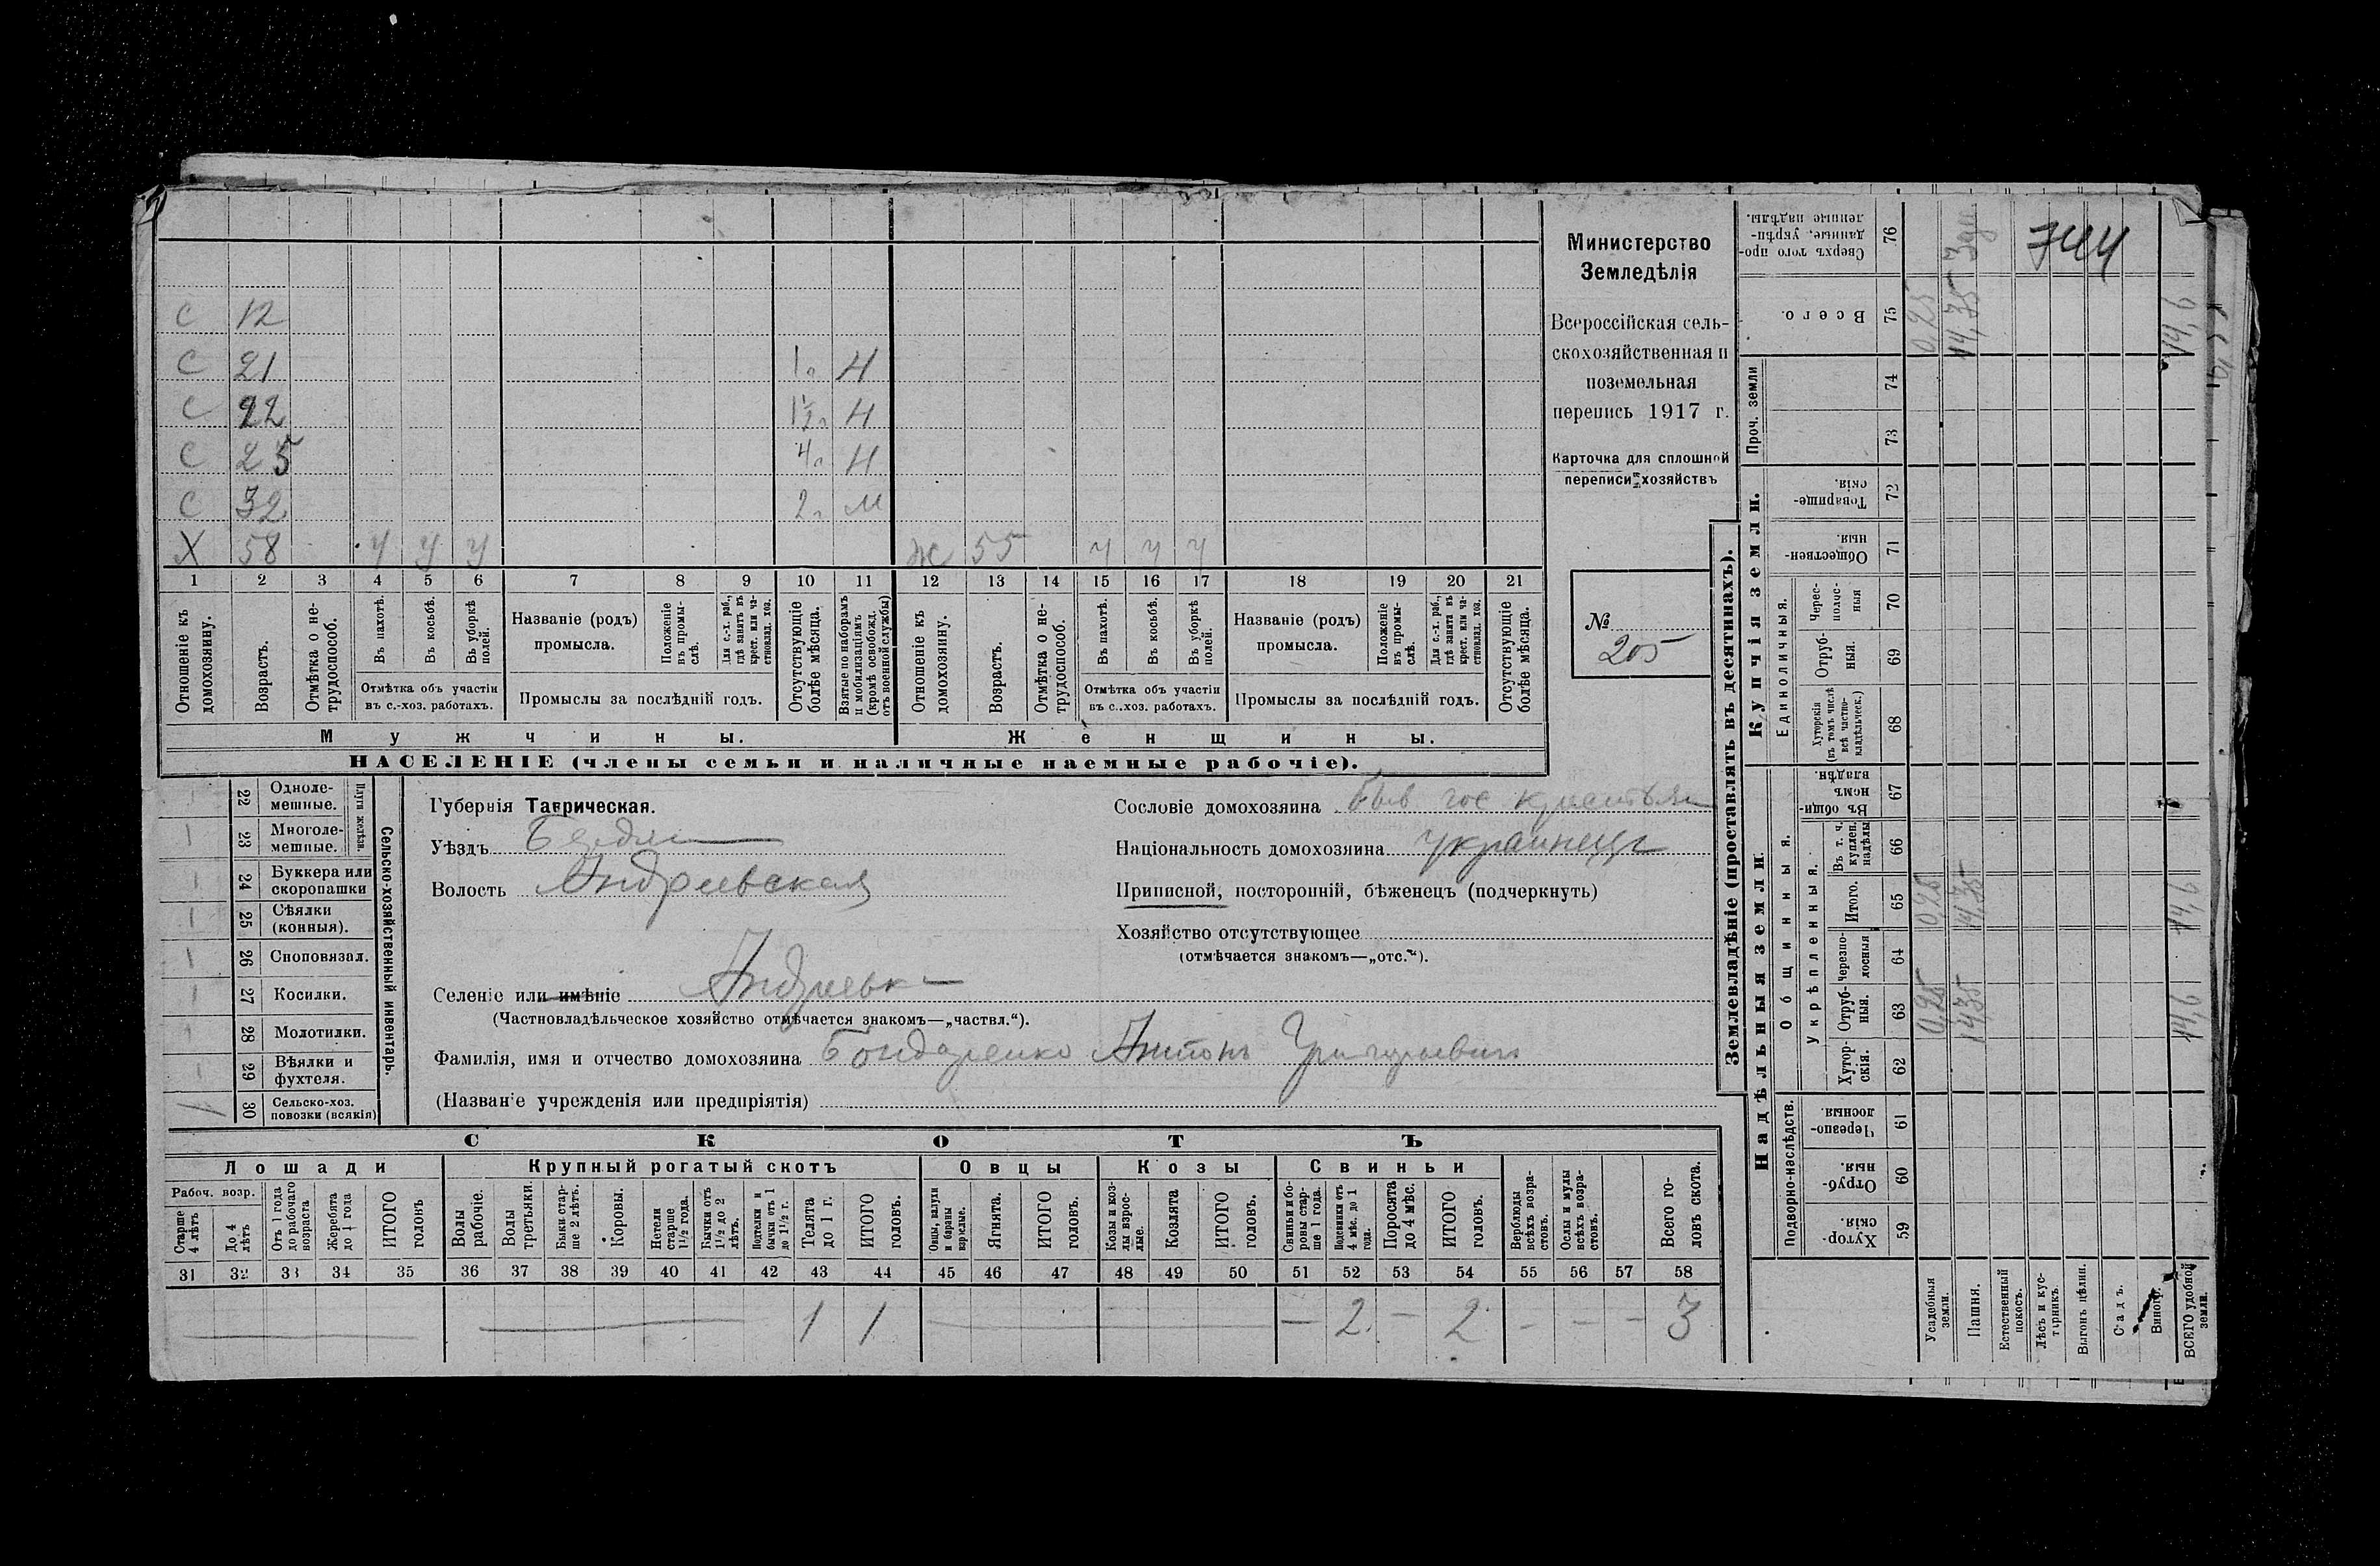 Министерство
Земледѣлія
Всероссійская сель-
скохозяйственная и
поземельная
перепись 1917 г.
Карточка для сплошной
переписи хозяйствъ
№
205
744
С 12
С 21 1 Н
С 22 1½ Н
С 25 4 Н
С 32 2 М
Х 58 У У У Ж 55 У У У
1 2 3 4 5 6 7 8 9 10 11 12 13 14 15 16 17 18 19 20 21
Отношеніе къ домохозяину.
Возрастъ.
Отмѣтка о не-трудоспособ.
Въ пахотѣ.
Въ косьбѣ.
Въ уборкѣ полей.
Отмѣтка объ участіи въ с.-хоз. работахъ.
Названіе (родъ) промысла.
Положеніе въ промы-слѣ.
Для с.-х. раб., гдѣ занятъ въ крест. или ча-стновлад. хоз.
Промыслы за послѣдній годъ.
Отсутствующіе болѣе мѣсяца.
Взятые по наборамъ и мобилизаціямъ (кромѣ освобожд. отъ военной службы)
Отношеніе къ домохозяину.
Возрастъ.
Отмѣтка о не-трудоспособ.
Въ пахотѣ.
Въ косьбѣ.
Въ уборкѣ полей.
Отмѣтка объ участіи въ с..хоз. работахъ.
Названіе (родъ) промысла.
Положеніе въ промы-слѣ.
Для с.-х. раб., гдѣ занята въ крест. или ча-стновлад. хоз.
Промыслы за послѣдній годъ.
Отсутствующіе болѣе мѣсяца.
Мужчины. Женщины.
НАСЕЛЕНІЕ (члены семьи и наличные наемные рабочіе).
Сельско-хозяйственный инвентарь.
Плуги желѣзн.
22 Одноле-мешные.
23 Многоле-мешные.
24 Буккера или скоропашки
25 Сѣялки (конныя).
26 Сноповязал.
27 Косилки.
28 Молотилки.
29 Вѣялки и фухтеля.
30 Сельско-хоз. повозки (всякія)
Губернія Таврическая.
Уѣздъ Бердян
Волость Андреевская
Селеніе или имѣніе Андреевка
(Частновладѣльческое хозяйство отмѣчается знакомъ—„частвл.“).
Фамилія, имя и отчество домохозяина Бондаренко Антонъ Григорьевичъ
(Названіе учрежденія или предпріятія)
Сословіе домохозяина Быв гос крестьян
Національность домохозяина украинецъ
Приписной, посторонній, бѣженецъ (подчеркнуть)
Хозяйство отсутствующее
(отмѣчается знакомъ—„отс.“).
СКОТЪ
Лошади Крупный рогатый скотъ Овцы Козы Свиньи
Рабоч. возр.
Старше 4 лѣтъ
До 4 лѣтъ
Отъ 1 года до рабочаго возраста
Жеребята до 1 года
ИТОГО головъ
Волы рабочіе.
Волы третьяки.
Быки стар-ше 2 лѣтъ.
Коровы.
Нетели старше 1½ года.
Бычки отъ 1½ до 2 лѣтъ.
Подтелки и бычки отъ 1 до 1½ г.
Телята до 1 г.
ИТОГО головъ.
Овцы, валухи и бараны взрослые.
Ягнята.
ИТОГО головъ.
Козы и коз-лы взрос-лые.
Козлята
ИТОГО головъ.
Свиньи и бо-ровы стар-ше 1 года.
Подсвинки отъ 4 мѣс. до 1 года.
Поросята до 4 мѣс.
ИТОГО головъ.
Верблюды всѣхъ возра-стовъ.
Ослы и мулы всѣхъ возра-стовъ.
Всего го-ловъ скота.
31 32 33 34 35 36 37 38 39 40 41 42 43 44 45 46 47 48 49 50 51 52 53 54 55 56 57 58
1 1 — 2 — 2 — — — 3
Землевладѣніе (проставлять въ десятинахъ).
Надѣльныя земли
Купчія земли.
Проч. земли
Подворно-наслѣдств.
Общинныя.
Укрѣпленныя.
Единоличныя.
Хутор-скія. 59
Отруб-ныя. 60
Черезпо-лосныя. 61
Хутор-скія. 62
Отруб-ныя. 63
Черезпо-лосныя 64
Итого. 65
Въ т. ч. куплен. надѣлы 66
Въ общин-номъ владѣн. 67
Хуторскія (въ томъ числѣ всѣ частно-владѣльческ.) 68
Отруб-ныя. 69
Черес-полос-ныя 70
Обществен-ныя. 71
Товарище-скія. 72
73
74
Всего. 75
Сверхъ того про-данные, укрѣп-ленные надѣлы. 76
Усадебныя земли. 0,25 0,25 0,25
Пашня. 14,35 14,35 14,35
Естественный покосъ.
Лѣсъ и кус-тарникъ.
Выгонъ цѣлин.
Садъ.
Виногр.
ВСЕГО удобной земли. 14,6 14,6 14,6